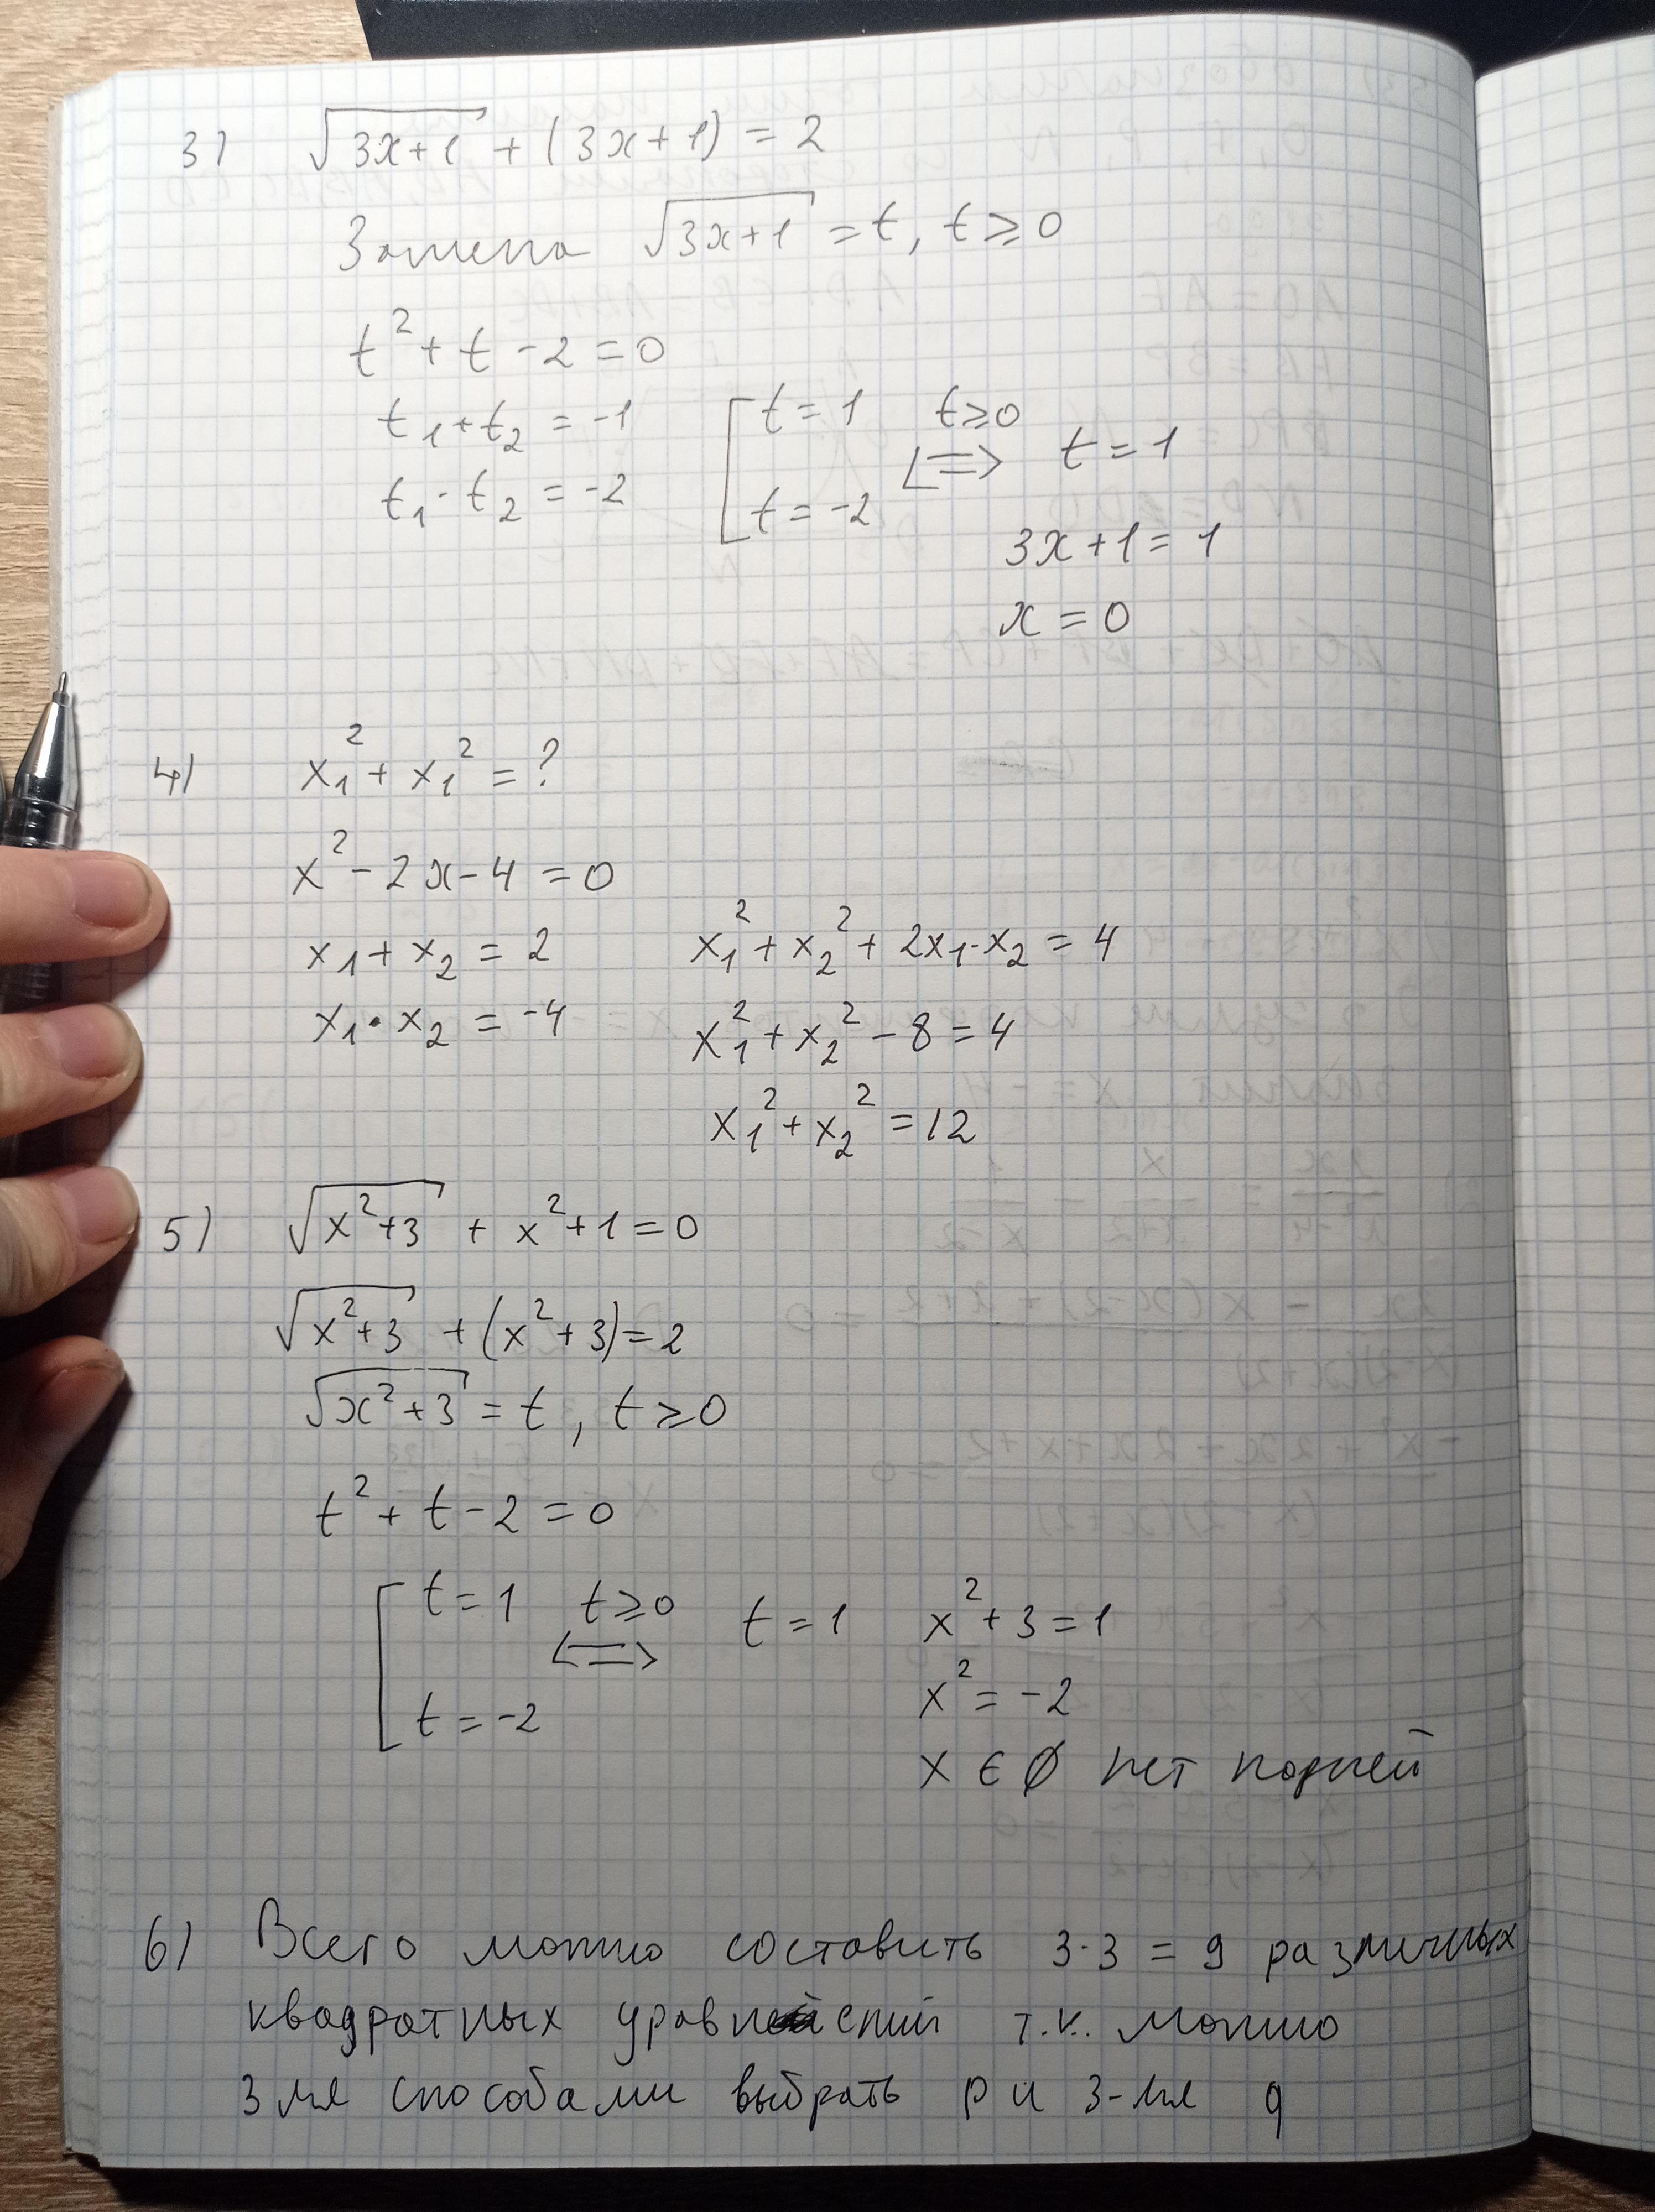 3) √(3x+1) + (3x+1) = 2
Замена √(3x+1) = t, t ⩾ 0
t² + t - 2 = 0
t₁ + t₂ = -1
t₁ · t₂ = -2
[ t = 1
t = -2
t⩾0
<=> t = 1
3x + 1 = 1
x = 0
4) x₁² + x₁² = ?
x² - 2x - 4 = 0
x₁ + x₂ = 2
x₁ · x₂ = -4
x₁² + x₂² + 2x₁·x₂ = 4
x₁² + x₂² - 8 = 4
x₁² + x₂² = 12
5) √(x²+3) + x² + 1 = 0
√(x²+3) + (x²+3) = 2
√(x²+3) = t, t ⩾ 0
t² + t - 2 = 0
[ t = 1
t = -2
t⩾0
<=> t = 1
x² + 3 = 1
x² = -2
x ∈ ∅ нет корней
6) Всего можно составить 3·3 = 9 различных
квадратных уравнений т.к. можно
3мя способами выбрать p и 3-мя q